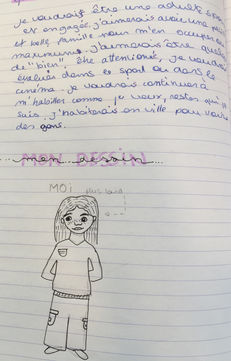 je voudrais être une adulte
et engagée. j'aimerais avoir une
et belle famille pour m'en occuper
maximum. j'aimerais être
de "bien". Être attentionée, je voudrais
évoluer dans le sport ou dans le
cinéma. je voudrais continuer à
m'habiller comme je veux, rester qui je
suis. j'habiterais en ville pour voir
des gens.
MON DESSIN
mon dessin
MOI plus tard